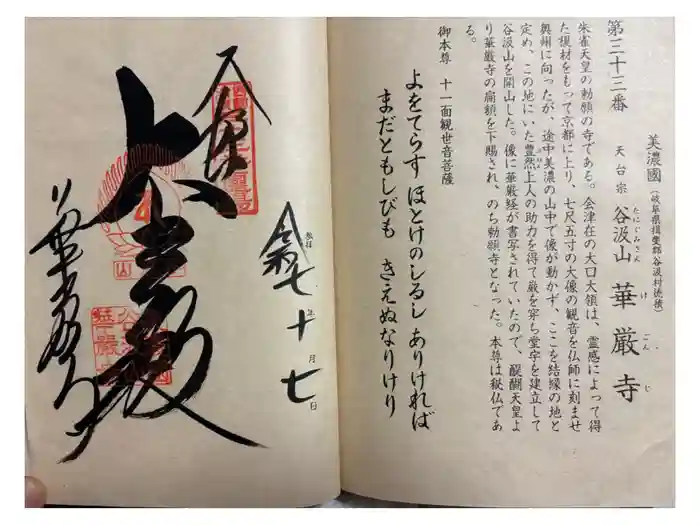 第三十三番
美濃國(岐阜県揖斐郡谷汲村徳積)
天台宗 谷汲山 華厳寺
たにぐみさん けごんじ
朱雀天皇の勅願の寺である。会津在の大口大領は、霊感によって得
た榎材をもって京都に上り、七尺五寸の大像の観音を仏師に刻ませ
奥州に向ったが、途中美濃の山中で像が動かず、ここを結縁の地と
定め、この地にいた豊然上人の助力を得て巌を穿ち堂宇を建立して
谷汲山を開山した。像に華厳経が書写されていたので、醍醐天皇よ
り華厳寺の扁額を下賜され、のち勅願寺となった。本尊は秘仏であ
る。
御本尊 十一面観世音菩薩
よをてらす ほとけのしるし ありければ
まだともしびも きえぬなりけり
奉拝
令和七年十月七日
華厳寺